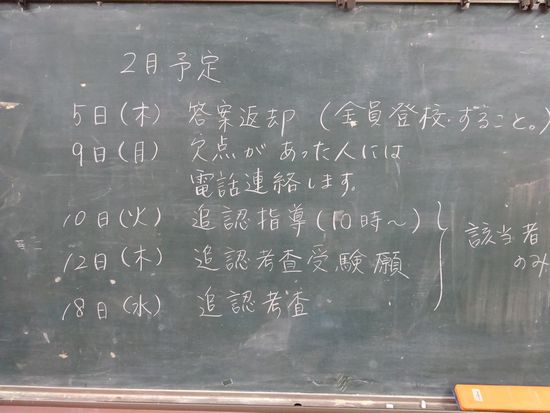 2月予定
5日(木) 答案返却 (全員登校・すること。)
9日(月) 欠点があった人には
電話連絡します。
10日(火) 追認指導(10時〜)
12日(木) 追認考査受験願
18日(水) 追認考査
該当者
のみ